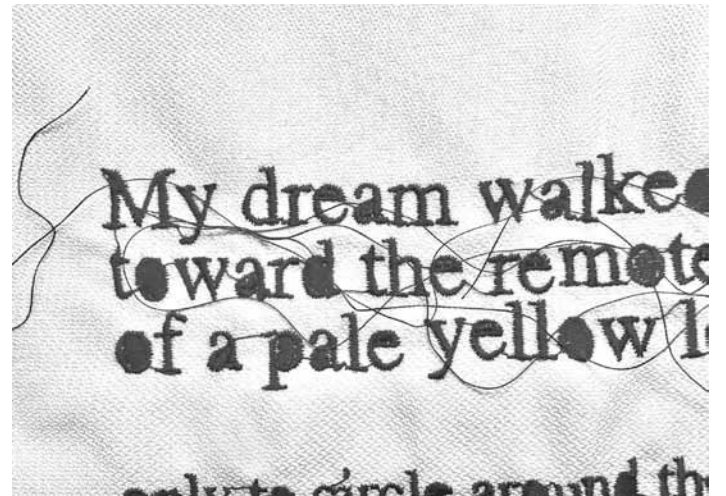 My dream walked
toward the remote
of a pale yellow
only to circle around the